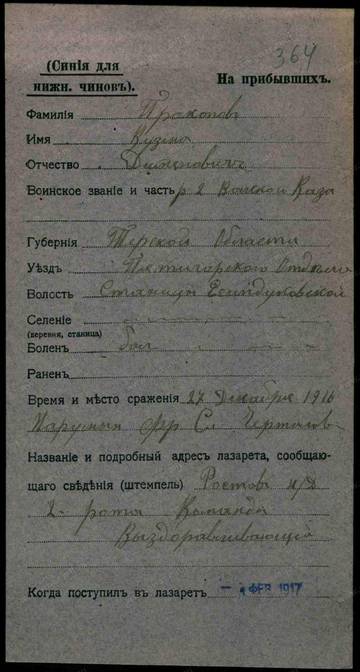 364
(Синія для
нижн. чиновъ).
На прибывшихъ.
Фамилія Пракоповъ
Имя Кузьма
Отчество
Воинское званіе и часть р 2 Каза
Губернія Терской Области
Уѣздъ Пятигорского Отдѣла
Волость Станицы Есентуковской
Селеніе
(деревня, станица)
Боленъ бол
Раненъ
Время и мѣсто сраженія 27 Декабря 1916
Название и подробный адресъ лазарета, сообщаю-
щаго свѣдѣнія (штемпель) Ростовъ н/Д
2- рота Команда
Выздоравливающих
Когда поступилъ въ лазаретъ ФЕВ 1917